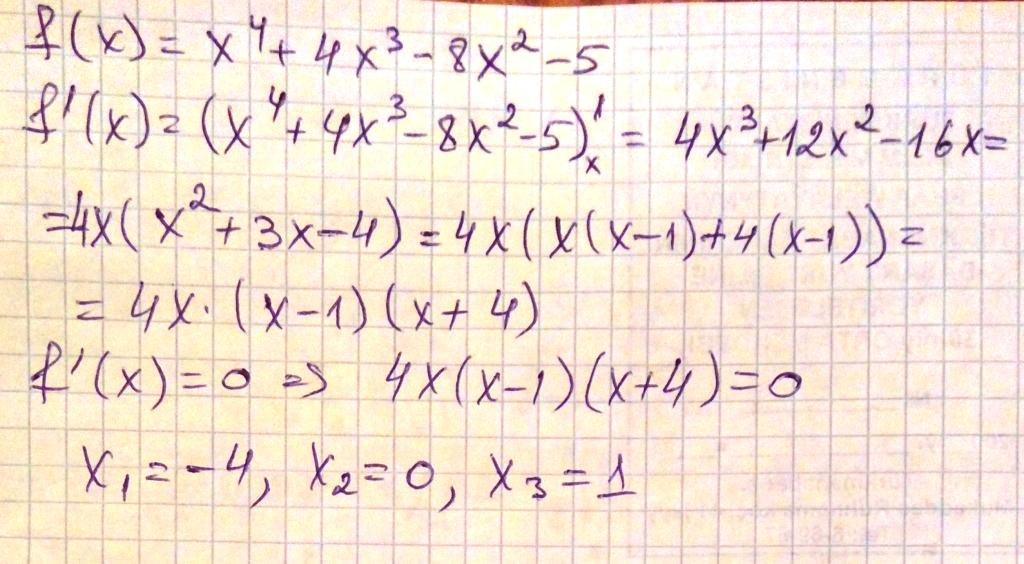 f(x) = x⁴ + 4x³ - 8x² - 5
f'(x) = (x⁴ + 4x³ - 8x² - 5)'ₓ = 4x³ + 12x² - 16x =
= 4x(x² + 3x - 4) = 4x(x(x-1) + 4(x-1)) =
= 4x · (x-1)(x+4)
f'(x) = 0 => 4x(x-1)(x+4) = 0
x₁ = -4, x₂ = 0, x₃ = 1